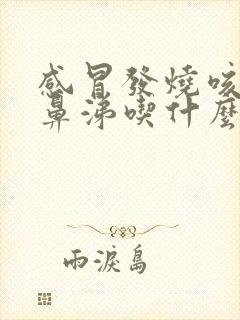 感冒發燒咳
鼻涕喫什麼
雨淚島